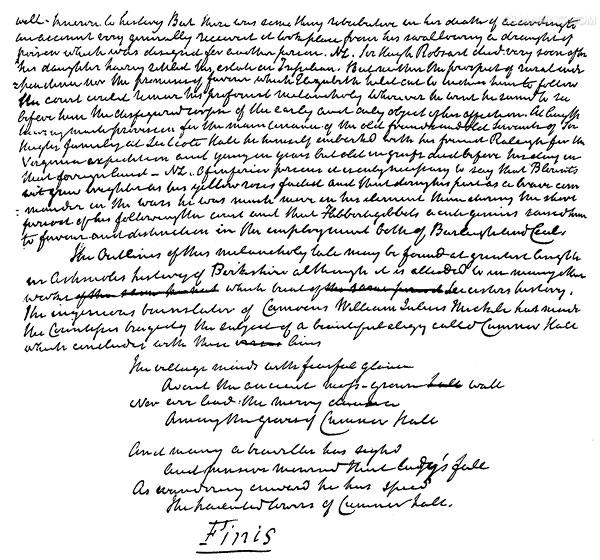 well-known to history But there was something retributive in his death if according to
an account very generally received it took place from his swallowing a draught of
poison which was designed for another person. NL. Sir Hugh Robsart died very soon after
his daughter having settled his estate on Tresilian. But neither the prospect of rural inde-
pendence nor the promises of favour which Elizabeth held out to induce him to follow
the court could remove his profound melancholy wherever he went he seemd to see
before him the disfigured corpse of the early and only object of his affection. At length
having made provision for the maintenance of the old friends and old servants of Sir
Hughs family at Lidcote Hall he himself embarkd with his friend Raleigh for the
Virginia expedition and young in years but old in griefs died before his day in
that foreign land. NL. Of inferior persons it is only necessary to say that Blounts
wit grew brighter as his yellow roses faded and that doing his part as a brave com
mander in the wars he was much more in his element than during the short
period of his following the court and that Flibbertigibbets acute genius raised him
to favour and distinction in the employment both of Burleigh and Cecil.
The outlines of this melancholy tale may be found at greater length
in Ashmoles history of Berkshire although it is alluded to in many other
works of the same which treat of the same period Leicesters history.
The ingenious translator of Camoens William Julius Mickle has made
the Countess's tragedy the subject of a beautiful elegy called Cumnor Hall
which concludes with these lines
The village maids with fearful glance
Avoid the ancient moss-grown hall wall
Nor ever lead the merry dance
Among the groves of Cumnor Hall
And many a traveller has sighd
and pensive mournd that lady's fall
As wandering onward he has spied
The haunted towers of Cumnor hall.
Finis